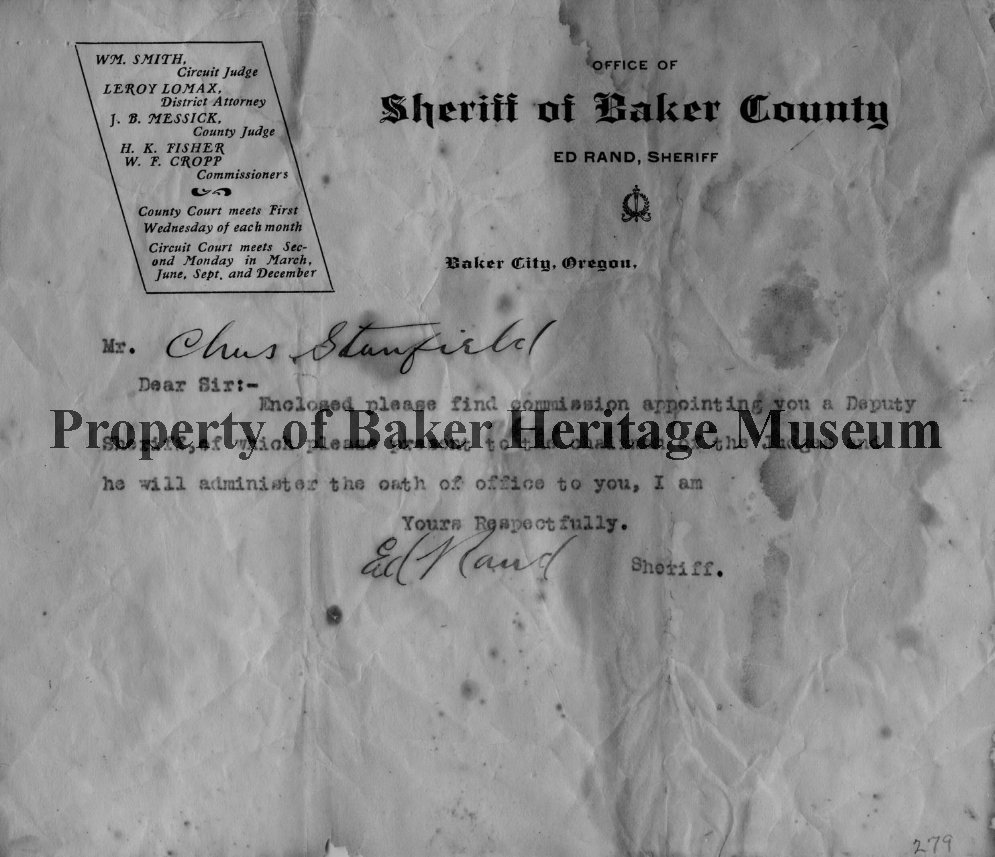 WM. SMITH,
Circuit Judge
LEROY LOMAX,
District Attorney
J. B. MESSICK,
County Judge
H. K. FISHER
W. F. CROPP
Commissioners
County Court meets First
Wednesday of each month
Circuit Court meets Sec-
ond Monday in March,
June, Sept. and December
OFFICE OF
Sheriff of Baker County
ED RAND, SHERIFF
Baker City, Oregon,
Mr. Chas Stanfield
Dear Sir:-
Enclosed please find commission appointing you a Deputy
Property of Baker Heritage Museum
Sheriff, of which please present to the the Judge and
he will administer the oath of office to you, I am
Yours Respectfully.
Ed Rand Sheriff.
279